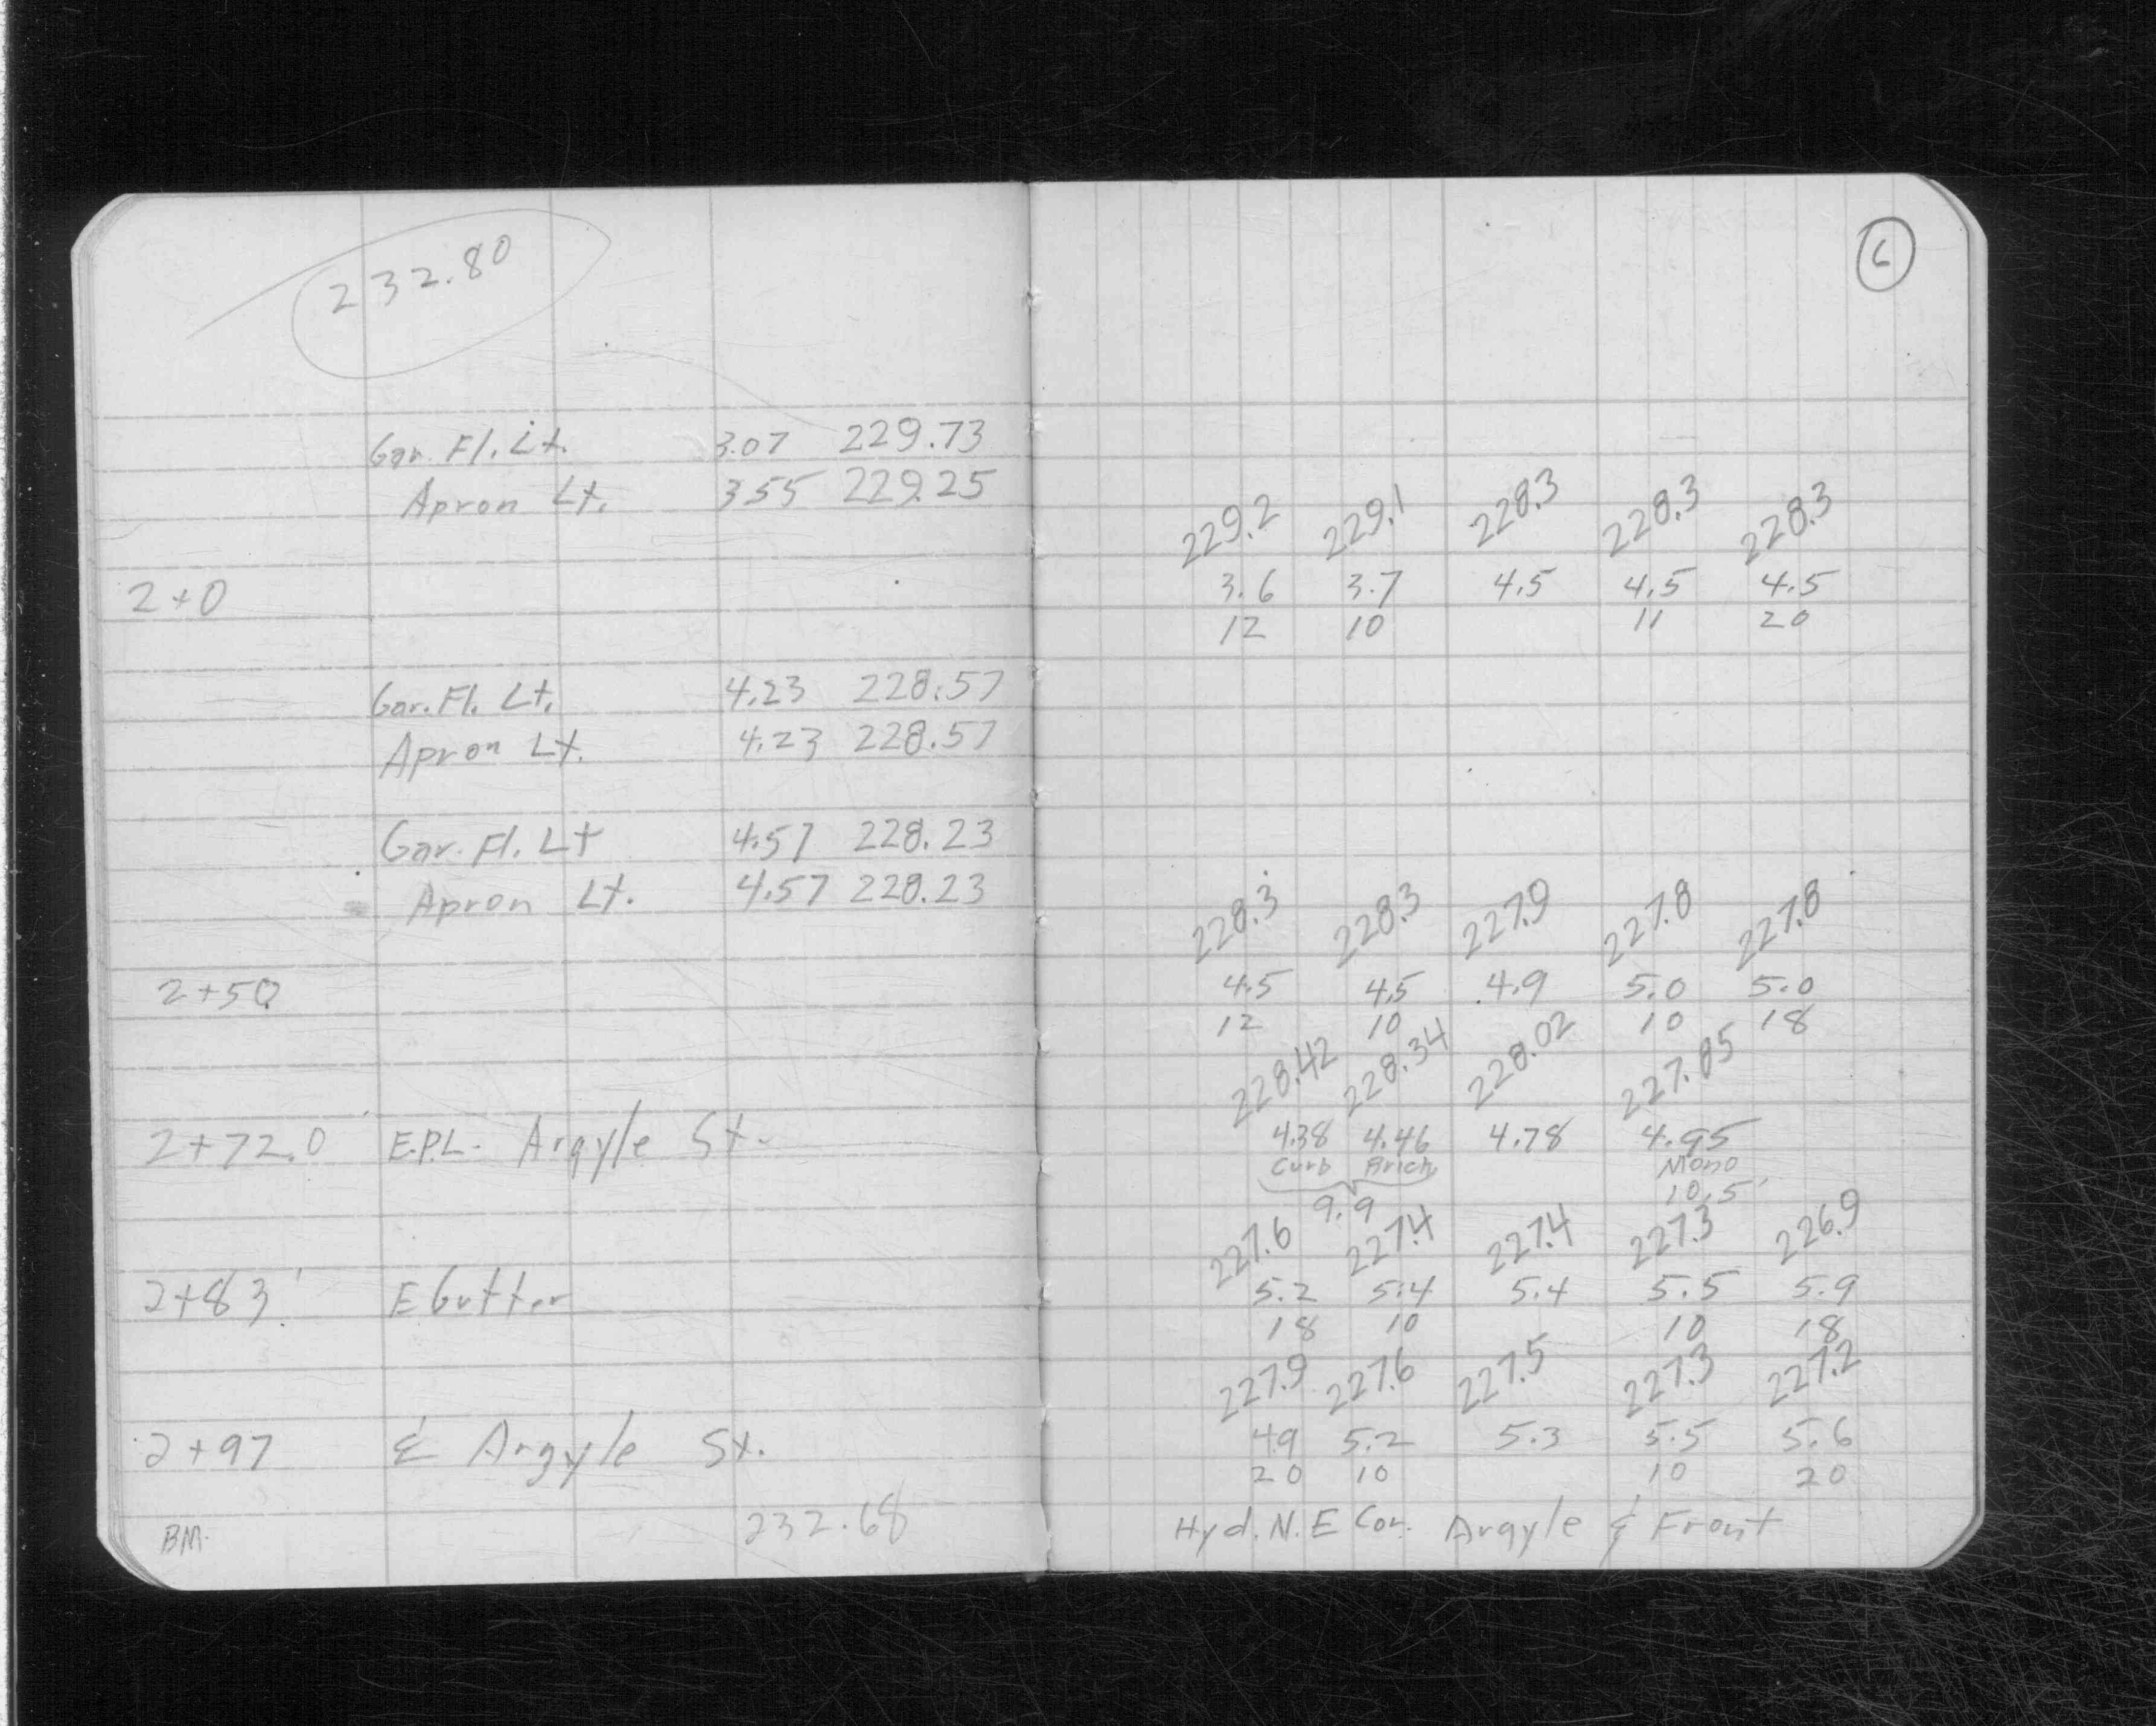 232.80
6
Gar. Fl. Lt. 3.07 229.73
Apron Lt. 3.55 229.25
229.2 229.1 228.3 228.3 228.3
2+0 3.6 3.7 4.5 4.5 4.5
12 10 11 20
Gar. Fl. Lt. 4.23 228.57
Apron Lt. 4.23 228.57
Gar. Fl. Lt 4.57 228.23
Apron Lt. 4.57 228.23
228.3 228.3 227.9 227.8 227.8
2+50 4.5 4.5 4.9 5.0 5.0
12 10 10 18
228.42 228.34 228.02 227.85
2+72.0 E.P.L. Argyle St. 4.38 4.46 4.78 4.95
Curb Brick Mono
9.9 10.5'
227.6 227.4 227.4 227.3 226.9
2+83' E Gutter 5.2 5.4 5.4 5.5 5.9
18 10 10 18
227.9 227.6 227.5 227.3 227.2
2+97 ȼ Argyle St. 4.9 5.2 5.3 5.5 5.6
20 10 10 20
BM. 232.68 Hyd. N.E Cor. Argyle & Front